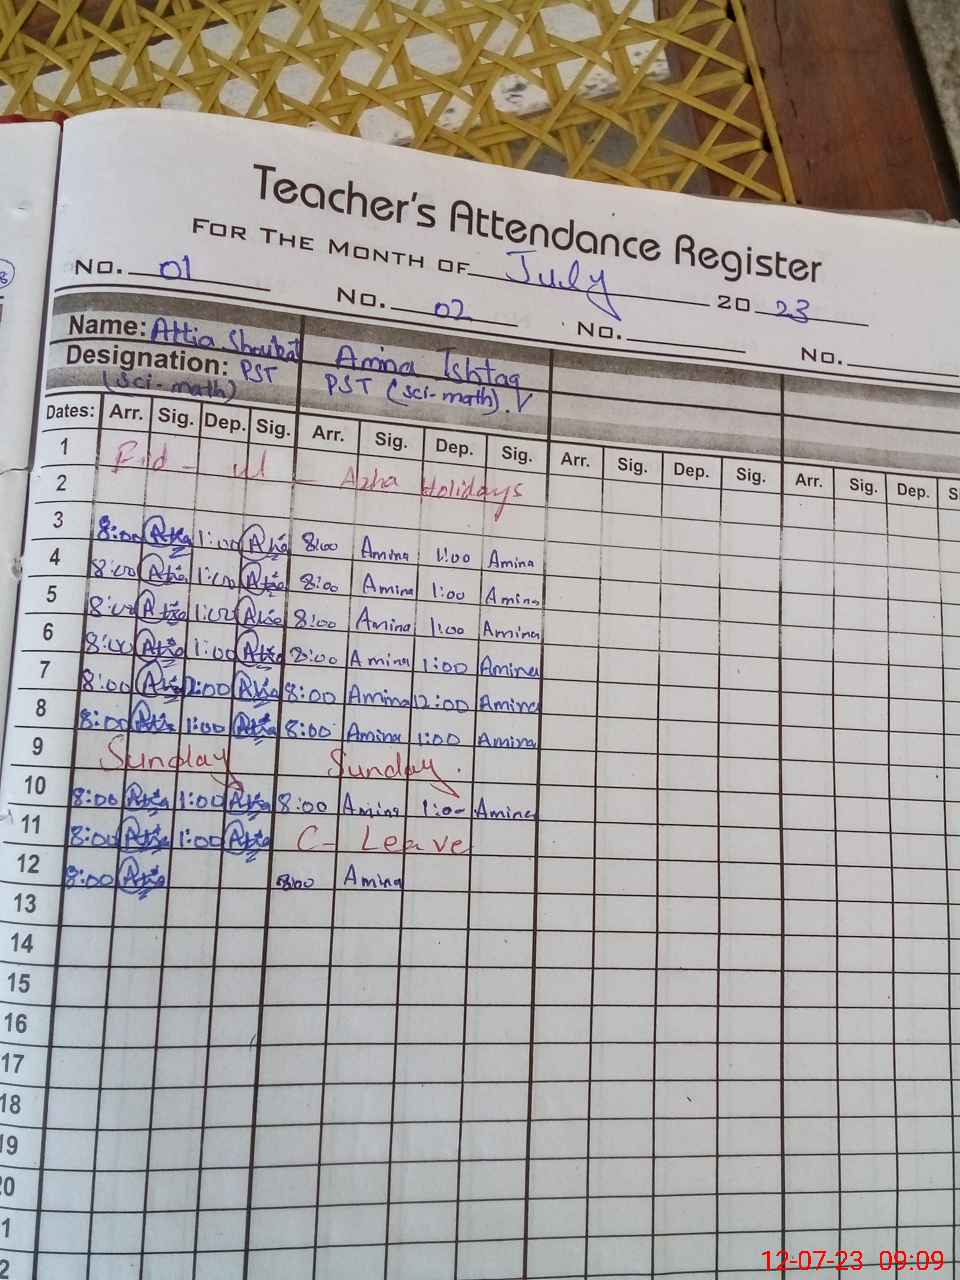 Teacher's Attendance Register
FOR THE MONTH OF July 2023
NO. 01 NO. 02 NO. NO.
Name: Attia Shoukat Amina Ishtaq
Designation: PST PST (sci-math).
(sci-math)
Dates: Arr. Sig. Dep. Sig. Arr. Sig. Dep. Sig. Arr. Sig. Dep. Sig. Arr. Sig. Dep. S
1 Eid - ul - Azha Holidays
2
3 8:00 Attia 1:00 Attia 8:00 Amina 1:00 Amina
4 8:00 Attia 1:00 Attia 8:00 Amina 1:00 Amina
5 8:00 Attia 1:00 Attia 8:00 Amina 1:00 Amina
6 8:00 Attia 1:00 Attia 8:00 Amina 1:00 Amina
7 8:00 Attia 12:00 Attia 8:00 Amina 12:00 Amina
8 8:00 Attia 1:00 Attia 8:00 Amina 1:00 Amina
9 Sunday Sunday
10 8:00 Attia 1:00 Attia 8:00 Amina 1:00 Amina
11 8:00 Attia 1:00 Attia C- Leave
12 8:00 Attia 8:00 Amina
13
14
15
16
17
18
19
20
1
2
12-07-23 09:09